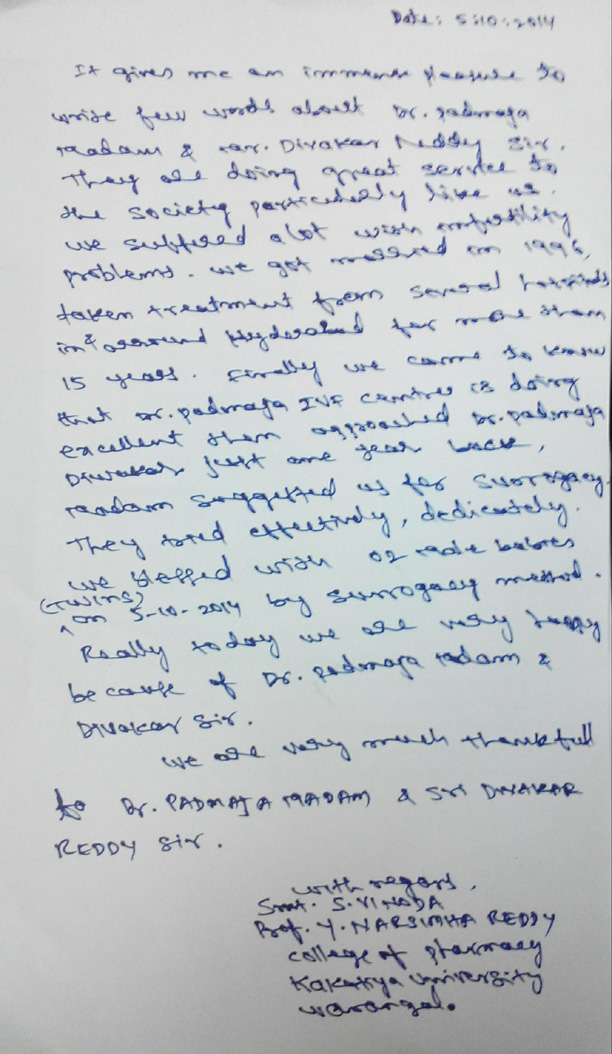 Date: 5:10:2014
It gives me an immense pleasure to
write few words about Dr. Padmaja
Madam & Dr. Divakar Reddy Sir.
They are doing great service to
the society particularly like us.
we suffered alot with infertility
problems. we got married in 1996,
taken treatment from several hospitals
in & around Hyderabad for more than
15 years. Finally we came to know
that Dr. padmaja IVF centre is doing
excellent then approached Dr. padmaja
Diwakar just one year back,
Madam suggested us for surrogacy.
They tried effectively, dedicately.
we blessed with 02 male babies
(TWINS)
^ on 5-10-2014 by surrogacy method.
Really today we are very happy
because of Dr. padmaja Madam &
Divakar Sir.
we are very much thankfull
to Dr. PADMAJA MADAM & Sri DIVAKAR
REDDY Sir.
with regars,
Smt. S. VINODA
Prof. Y. NARSIMHA REDDY
college of pharmacy
Kakatiya University
Warangal.